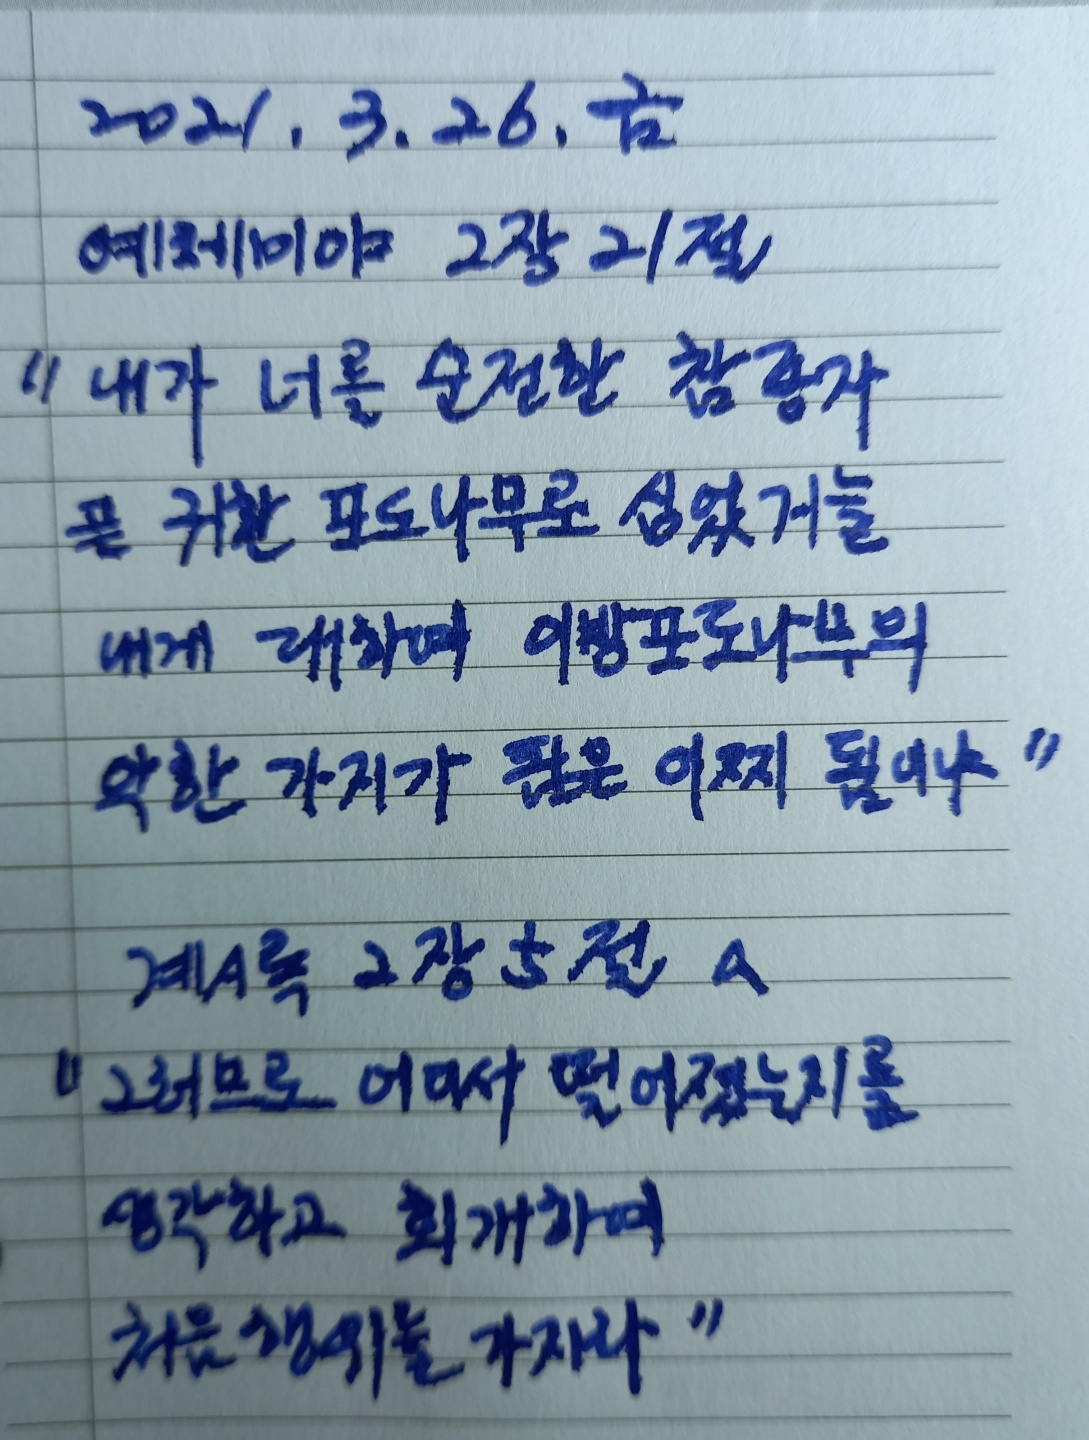 2021. 3. 26. 금
예레미야 2장 21절
"내가 너를 순전한 참 종자
곧 귀한 포도나무로 심었거늘
내게 대하여 이방포도나무의
악한 가지가 됨은 어찌 됨이냐"
계시록 2장 5절 A
"그러므로 어디서 떨어졌는지를
생각하고 회개하여
처음 행위를 가지라"